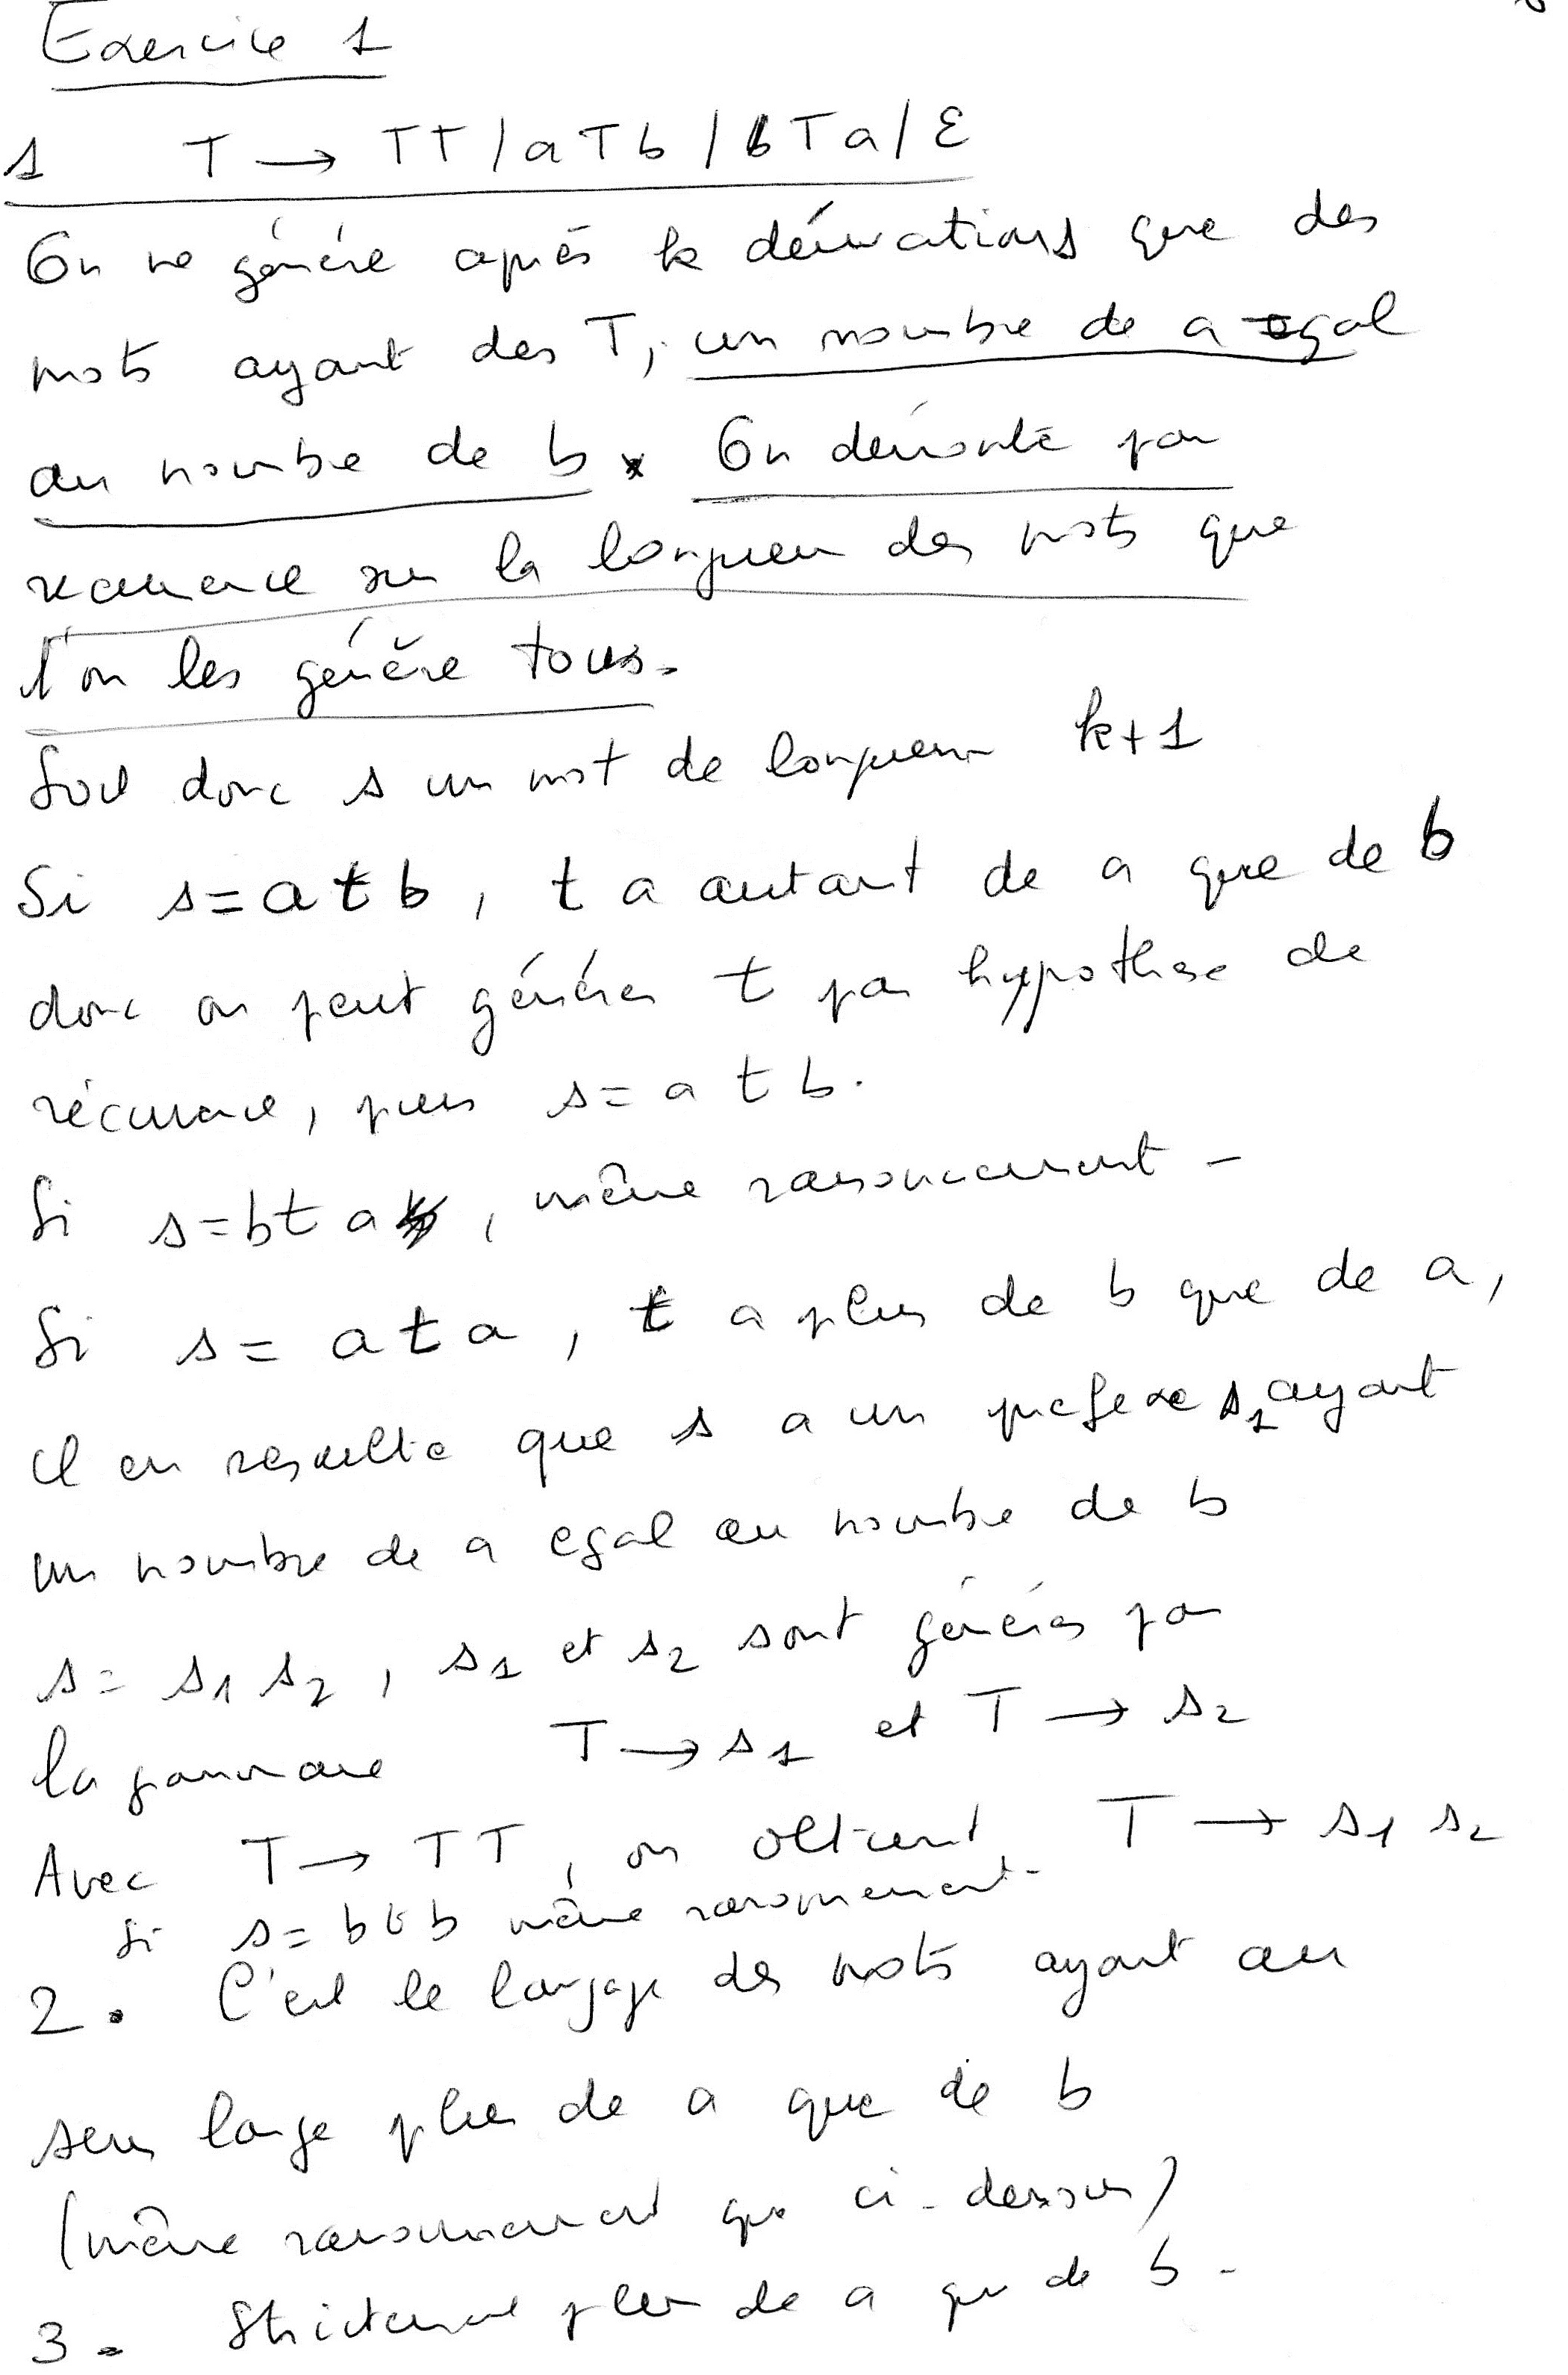 Exercice 1
1 T → TT / aTb / bTa / ε
On ne génère après k dérivations que des
mots ayant des T, un nombre de a egal
au nombre de b. On démontre par
récurrence sur la longueur des mots que
l'on les génère tous.
Soit donc s un mot de longueur k+1
Si s = a t b, t a autant de a que de b
donc on peut générer t par hypothèse de
récurrence, puis s = a t b.
Si s = b t a, même raisonnement -
Si s = a t a, t a plus de b que de a,
il en resulte que s a un prefixe s1 ayant
un nombre de a egal au nombre de b
s = s1 s2, s1 et s2 sont générés par
la grammaire T → s1 et T → s2
Avec T → TT, on obtient T → s1 s2
Si s = b t b même raisonnement -
2. C'est le langage des mots ayant au
sens large plus de a que de b
(même raisonnement que ci-dessus)
3. Strictement plus de a que de b -